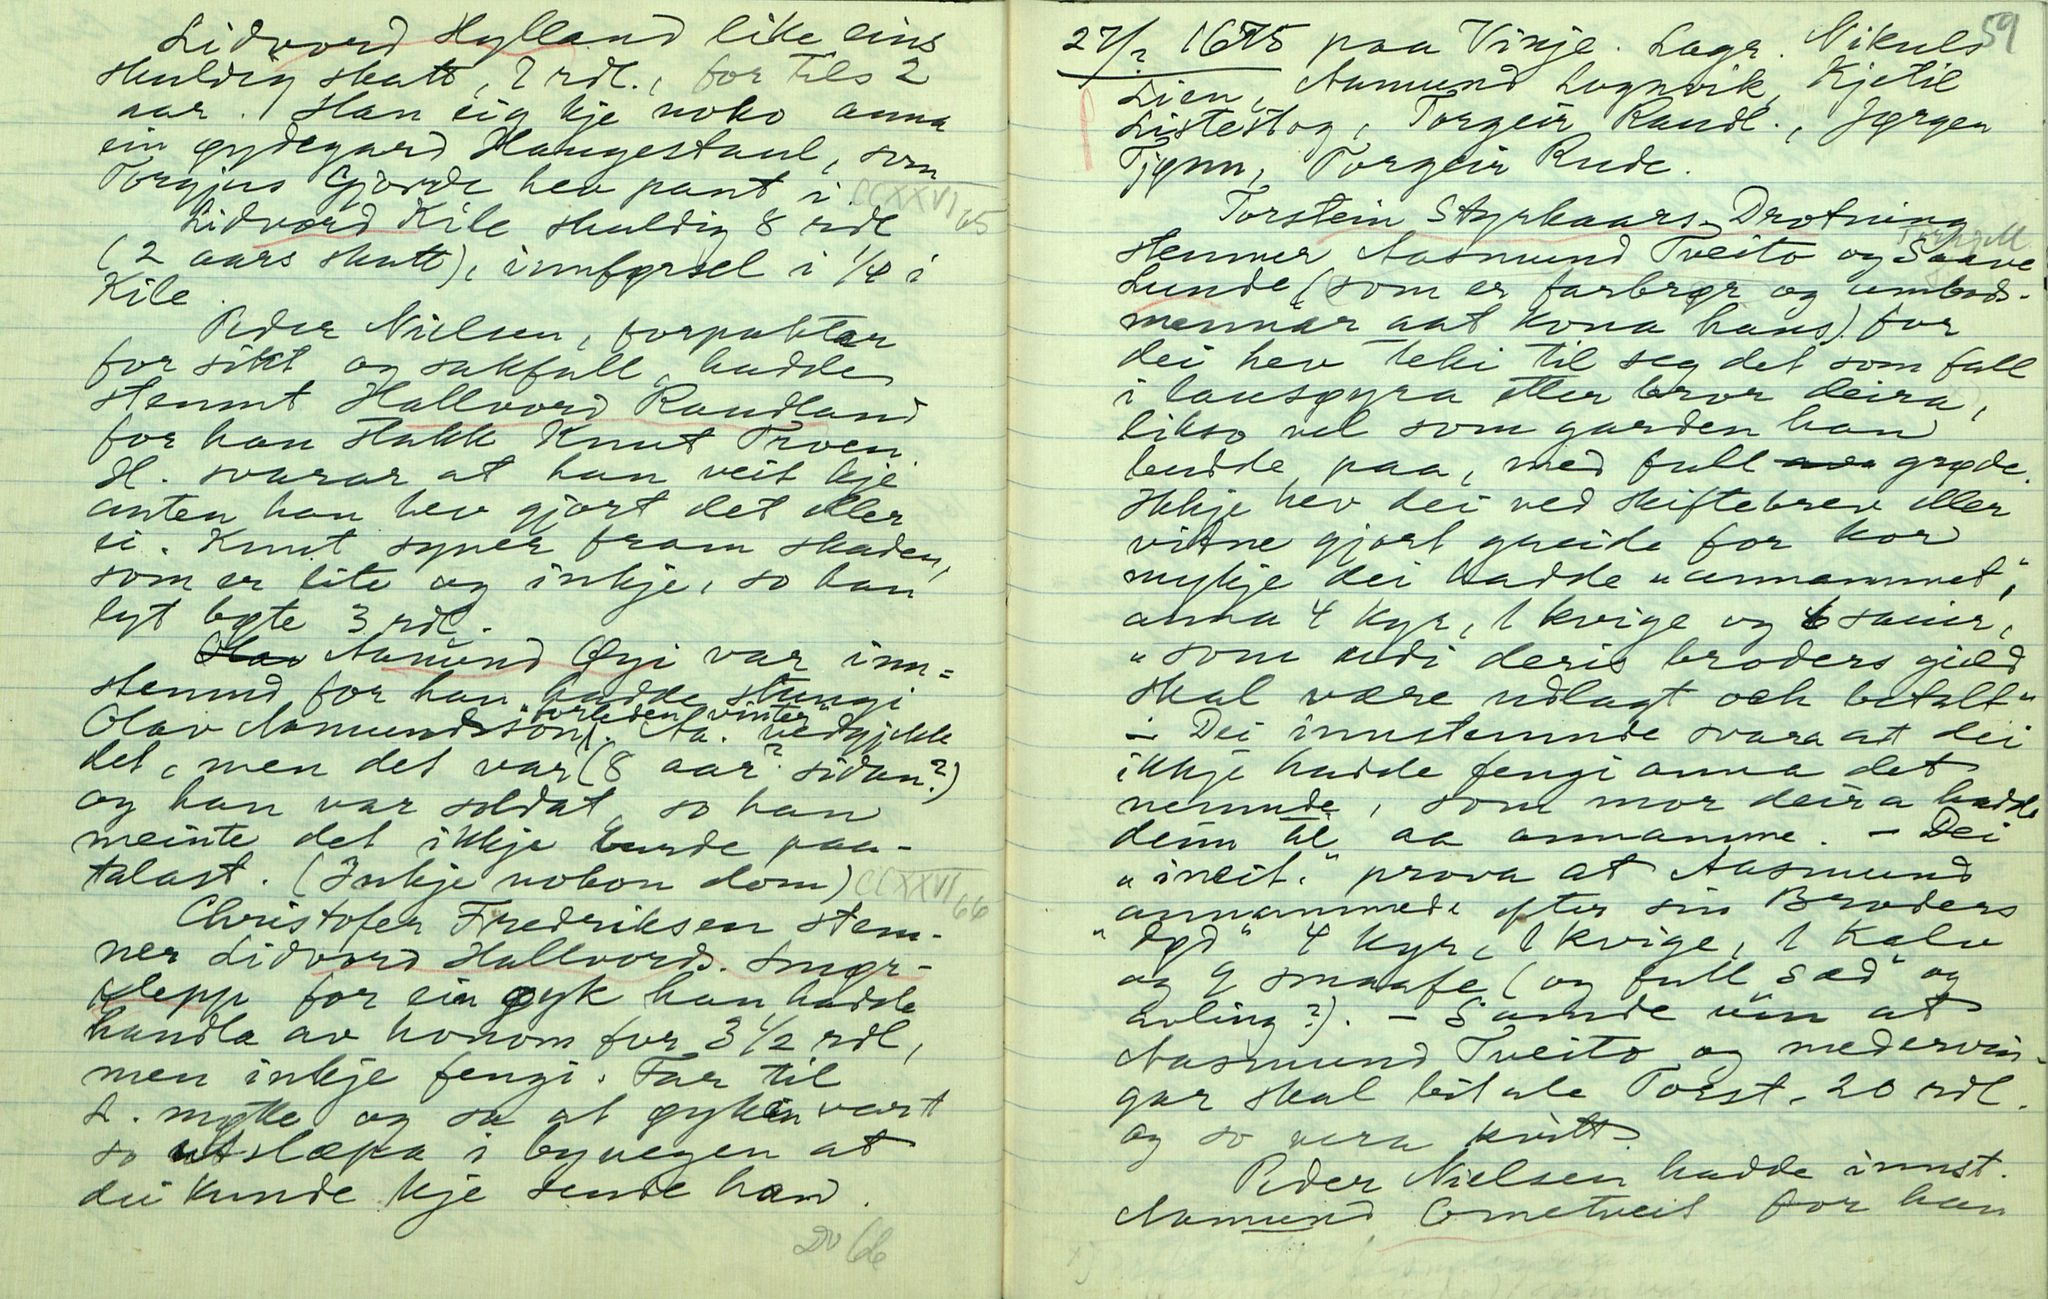 Lidvord Hylland like eins
skuldig skatt, 2 rdl., for tils 2
aar. Han eig kje noko anna
ein øydegard Haugestaul, som
Torgjus Gjorde hev pant i. CCXXVI 65
Lidvord Kile skuldig 8 rdl
(2 aars skatt), innførsel i 1/4 i
Kile.
Peder Nielsen, forpaktar
for sikt og sakfall, hadde
stemnt Hallvord Raudland
for han stakk Knut Troen.
H. svarar at han veit kje
anten han hev gjort det eller
ei. Knut syner fram skaden,
som er lite og inkje, so han
lyt bøte 3 rdl.
Olav Aamund Øyi var inn=
stemnd for han hadde stungi
Olav Aamundsson "forleden vinter". Aa. vedgjekk
det, men det var (8 aar? sidan?)
og han var soldat, so han
meinte det ikkje burde paa-
talast. (Inkje nokon dom) CCXXVI 66
Christofer Fredriksen stem-
ner Lidvord Hallvords. Smør-
klepp for ein øyk han hadde
handla av honom for 3 1/2 rdl,
men inkje fengi. Far til
L. møtte og sa at øyken vart
so utslæpa i byvegen at
dei kunde kje sende han.
66
59
27/2 1675 paa Vinje. Lagr. Nikuls
Lien, Aamund Lognvik, Kjetil
Listestog, Torgeir Raudl., Jørgen
Tjønn, Torgeir Rude.
Torstein Styrkaars. Drotning
stemner Aasmund Tveito og Saave
Lunde (som er farbrør og umbods-
mennar aat kona hans) for
dei hev teki til seg det som fall
i lausøyra etter bror deira,
likso vel som garden han
budde paa, med full grøde.
Ikkje hev dei ved skiftebrev eller
vitne gjort greide for kor
mykje dei hadde "annammet",
anna 4 kyr, 1 kvige og 6 sauer,
"som udi deris broders gield
skal være udlagt och betalt"
- Dei innstemnde svara at dei
ikkje hadde fengi anna det
nemnde, som mor deira hadde
deim til aa annamme. - Dei
"incit." prova at Aasmund
annammede efter sin Broders
"død" 4 kyr, 1 kvige, 1 kalv
og 9 smaafe (og full sæd" og
avling?). - Samde um at
Aasmund Tveito og medarvin-
gar skal betale Torst. 20 rdl.
og so vera kvitt.
Peder Nielsen hadde innst.
Aamund Ornetveit for han